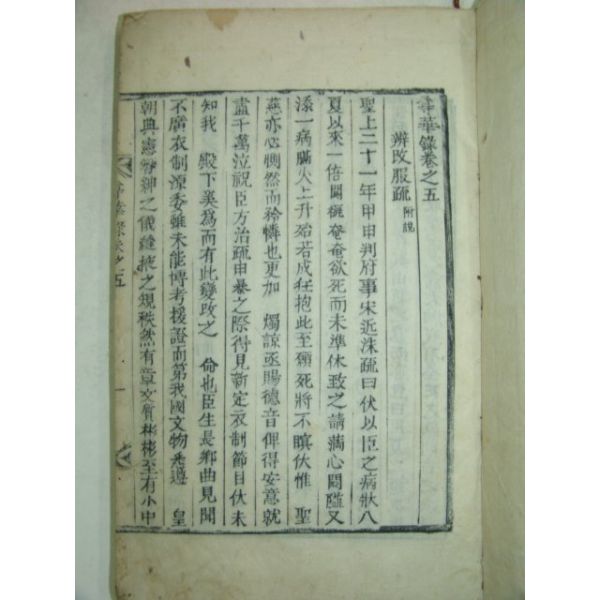 華錄卷之五
辨改服疏 附說
聖上二十一年甲申判府事宋近洙疏曰伏以臣之病狀入
夏以來一倍闖奄奄欲死而未準休致之請滿心悶隘又
添一病臟火上升殆若成狂抱此至頑死將不瞑伏惟 聖
慈亦必惻然而矜憐也更加 燭諒亟賜德音俾得安意就
盡千萬泣祝臣方治疏申暴之際得見新定衣制節目伏未
知我 殿下奚爲而有此變改之 命也臣生長鄕曲見聞
不廣衣制源委雖未能博考援證而第我國文物悉遵 皇
朝典憲搢紳之儀縫掖之規秩然有章文質彬彬至有小中
華錄卷之五